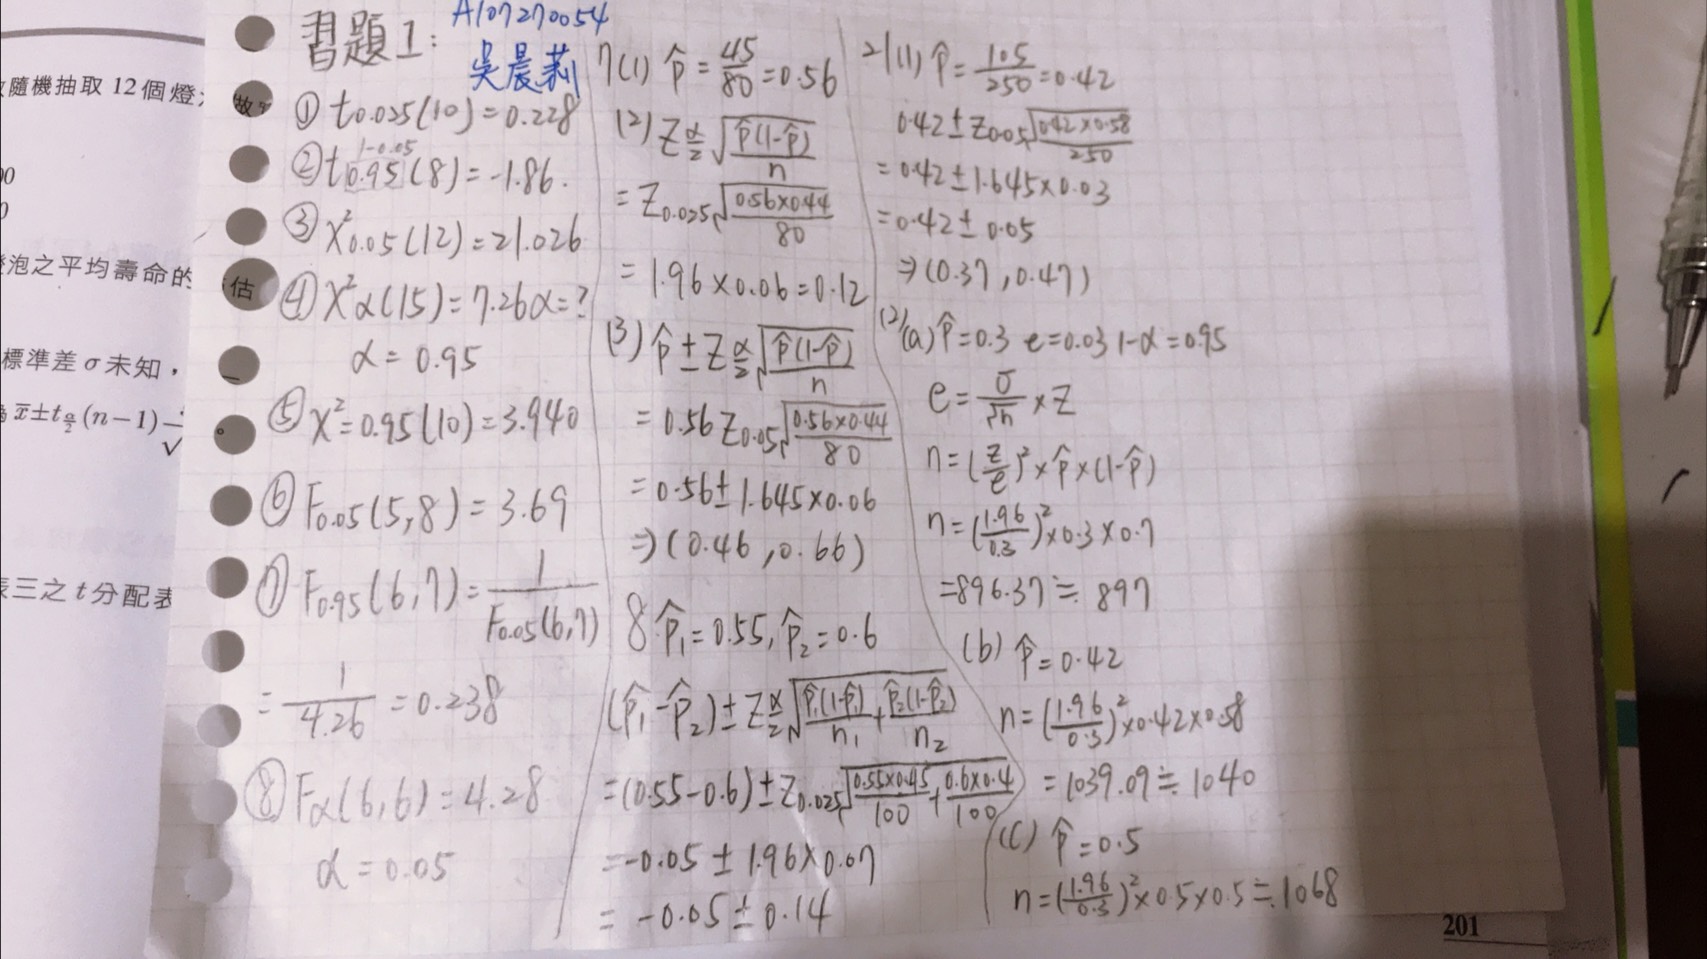 習題1:
A107270054
吳晨莉
① t0.025(10)=0.228
1-0.05
② t0.95(8)=-1.86.
③ X²0.05(12)=21.026
④ X²α(15)=7.26 α=?
α=0.95
⑤ X²=0.95(10)=3.940
⑥ F0.05(5,8)=3.69
⑦ F0.95(6,7)=1/F0.05(6,7)
=1/4.26=0.238
⑧ Fα(6,6)=4.28
α=0.05
7(1) p̂=45/80=0.56
(2) Zα/2√(p̂(1-p̂)/n)
=Z0.025√(0.56×0.44/80)
=1.96×0.06=0.12
(3) p̂±Zα/2√(p̂(1-p̂)/n)
=0.56 Z0.05√(0.56×0.44/80)
=0.56±1.645×0.06
⇒(0.46,0.66)
8 p̂1=0.55,p̂2=0.6
(p̂1-p̂2)±Zα/2√(p̂1(1-p̂1)/n1+p̂2(1-p̂2)/n2)
=(0.55-0.6)±Z0.025√(0.55×0.45/100+0.6×0.4/100)
=-0.05±1.96×0.07
=-0.05±0.14
21(1) p̂=105/250=0.42
0.42±Z0.05√(0.42×0.58/250)
=0.42±1.645×0.03
=0.42±0.05
⇒(0.37,0.47)
(2)(a) p̂=0.3 e=0.03 1-α=0.95
e=σ/√n×Z
n=(Z/e)²×p̂×(1-p̂)
n=(1.96/0.3)²×0.3×0.7
=896.37≒897
(b) p̂=0.42
n=(1.96/0.3)²×0.42×0.58
=1039.09≒1040
(c) p̂=0.5
n=(1.96/0.3)²×0.5×0.5≒1068
隨機抽取 12 個燈
故
泡之平均壽命的
估
標準差σ未知，
x̄±tα/2(n-1)
三之t分配表
201